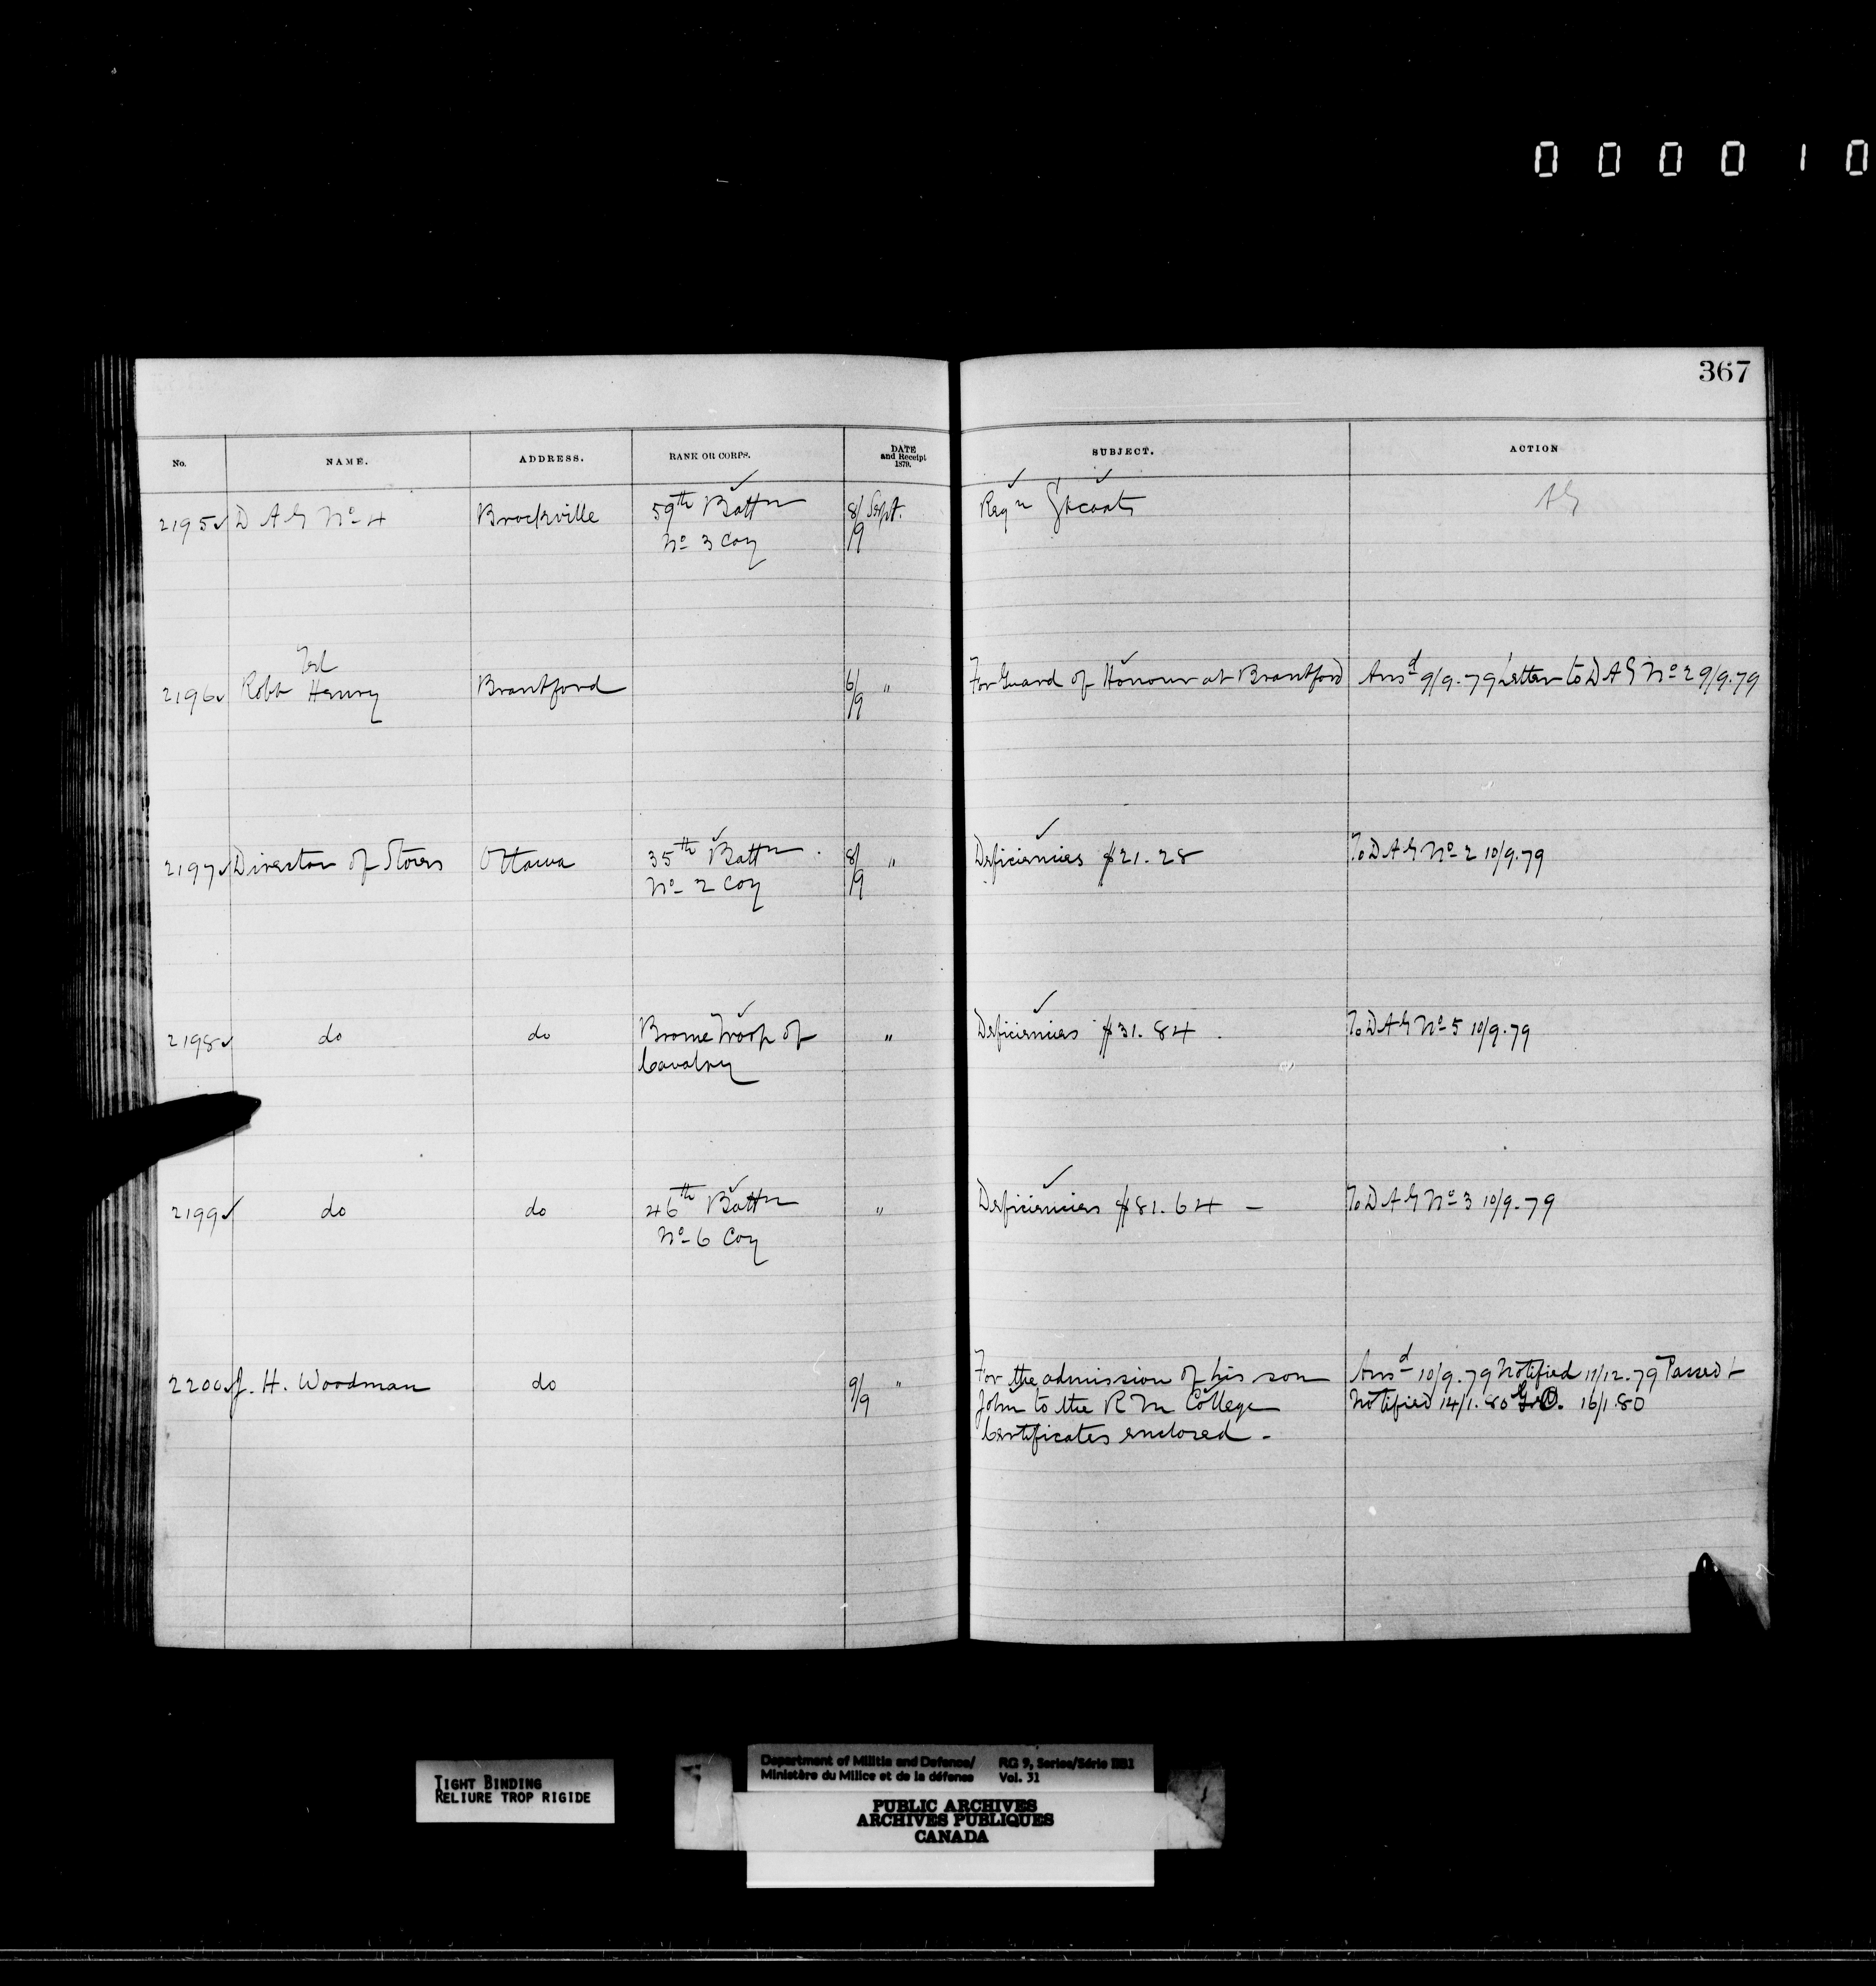 000010
367
No. NAME. ADDRESS. RANK OR CORPS. DATE and Receipt 1879. SUBJECT. ACTION
2195 ✓ D A G No 4 Brockville 59th Battn 8/ Sept. Reqn Gtcoats AG
No 3 Coy /9
Tel
2196 ✓ Robt Henry Brantford 6/9 " For Guard of Honour at Brantford Ansd 9/9.79 Letter to D A G No 2 9/9.79
2197 ✓ Director of Stores Ottawa 35th Battn 8/9 " Deficiencies $21.28 To D A G No 2 10/9.79
No 2 Coy
2198 ✓ do do Brome Troop of " Deficiencies $31.84 To D A G No 5 10/9.79
Cavalry
2199 ✓ do do 46th Battn " Deficiencies $81.64 — To D A G No 3 10/9.79
No 6 Coy
2200 ✓ J. H. Woodman do 9/9 " For the admission of his son Ansd 10/9.79 Notified 11/12.79 Passed +
John to the R M College Notified 14/1.80 G.O. 16/1.80
Certificates enclosed -
TIGHT BINDING
RELIURE TROP RIGIDE
Department of Militia and Defence/ RG 9, Series/Série IIB1
Ministère du Milice et de la défense Vol. 31
PUBLIC ARCHIVES
ARCHIVES PUBLIQUES
CANADA